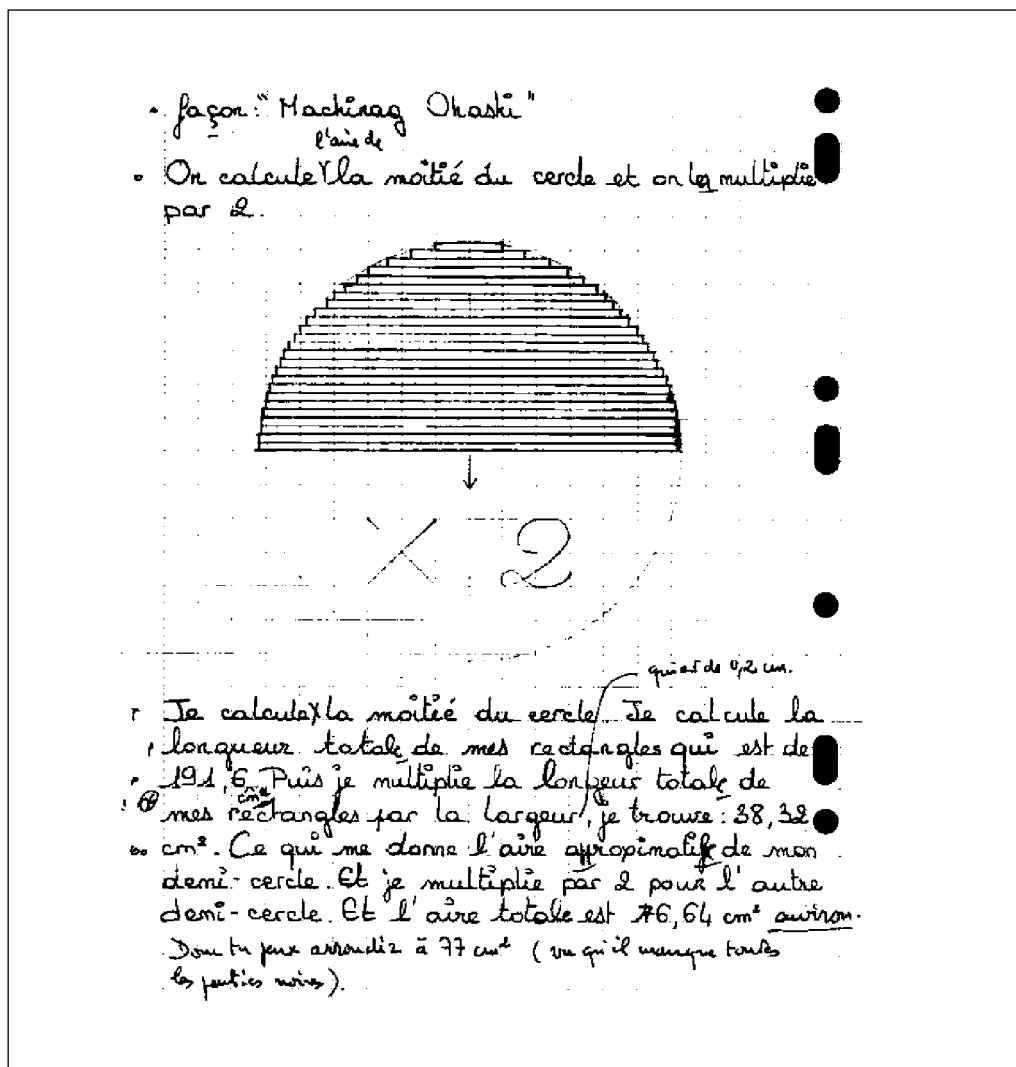 façon: "Machinag Ohashi"
l'aire de
On calcule la moitié du cercle et on les multiplie
par 2.
X 2
qui est de 0,2 cm.
Je calcule la moitié du cercle. Je calcule la
longueur totale de mes rectangles qui est de
191,6 cm. Puis je multiplie la longeur totale de
mes rectangles par la largeur, je trouve : 38,32
cm². Ce qui me donne l'aire approximatif de mon
demi-cercle. Et je multiplie par 2 pour l'autre
demi-cercle. Et l'aire totale est 76,64 cm² environ.
Donc tu peux arrondir à 77 cm² (vu qu'il manque toutes
les parties noires).